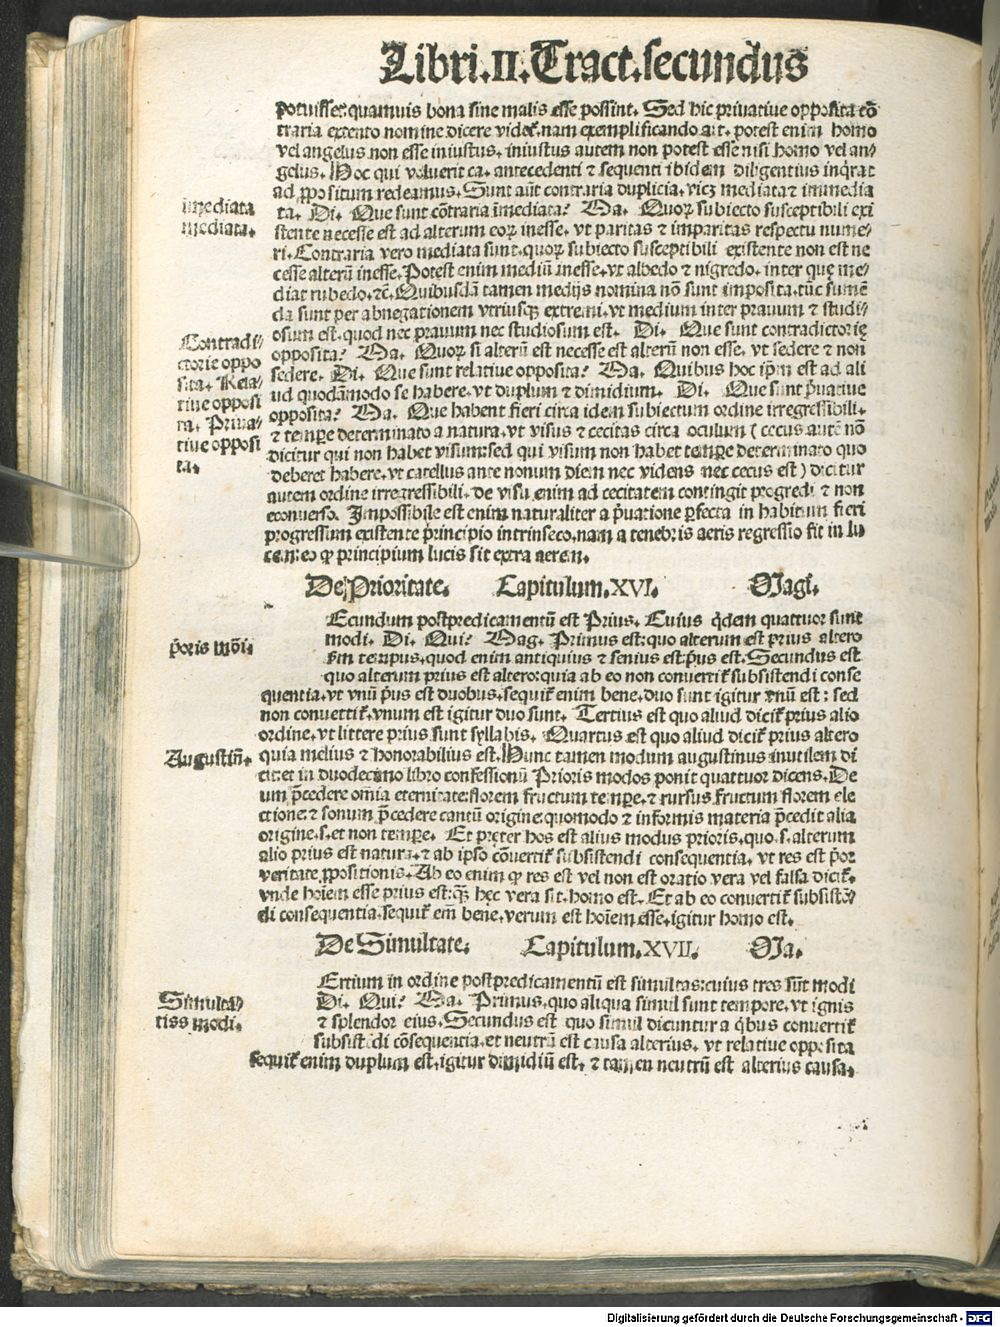 Libri.II.Tract.secundus
potuisset:quamuis bona sine malis esse possint. Sed hic priuatiue opposita cõ
traria extento nomine dicere videt᷑.nam exemplificando ait. potest enim homo
vel angelus non esse iniustus. iniustus autem non potest esse nisi homo vel an⸗
gelus. Hoc qui voluerit ca. antecedenti ⁊ sequenti ibidem diligentius inq̃rat
ad ꝓpositum redeamus. Sunt aũt contraria duplicia. vicꝫ mediata ⁊ immedia
imediata
mediata.
ta. Di. Que sunt cõtraria ĩmediata? Ma. Quoꝝ subiecto susceptibili exi
stente necesse est ad alterum eoꝝ inesse. vt paritas ⁊ imparitas respectu nume⸗
ri. Contraria vero mediata sunt.quoꝝ subiecto susceptibili existente non est ne
cesse alterũ inesse. Potest enim mediũ inesse. vt albedo ⁊ nigredo. inter quę me⸗
diat rubedo.⁊c̃. Quibusdã tamen medijs nomina nõ sunt imposita. tũc sumẽ
da sunt per abnegationem vtriusqꝫ extremi. vt medium inter prauum ⁊ studi⸗
osum est. quod nec prauum nec studiosum est. Di. Que sunt contradictorię
Contradi⸗
ctorie oppo
sita. Rela⸗
tiue opposi
ta. Priua⸗
tiue opposi
ta.
opposita? Ma. Quoꝝ si alterũ est necesse est alterũ non esse. vt sedere ⁊ non
sedere. Di. Que sunt relatiue opposita? Ma. Quibus hoc ip̃m est ad ali
ud quodãmodo se habere. vt duplum ⁊ dimidium. Di. Que sunt p̃uatiue
opposita? Ma. Que habent fieri circa idem subiectum ordine irregressibili.
⁊ tempe determinato a natura. vt visus ⁊ cecitas circa oculum (cecus autẽ nõ
dicitur qui non habet visum:sed qui visum non habet tempe determinato quo
deberet habere. vt catellus ante nonum diem nec videns nec cecus est) dicitur
autem ordine irregressibili. de visu enim ad cecitatem contingit progredi ⁊ non
econuerso. Impossibile est enim naturaliter a p̃uatione ꝑfecta in habitum fieri
progressum existente principio intrinseco. nam a tenebris aeris regressio fit in lu
cem: eo ꝙ principium lucis sit extra aerem.
De Prioritate. Capitulum.XVI. Magr̃.
Ecundum postpredicamentũ est Prius. Cuius q̃dem quattuor sunt
p̃oris mõi.
modi. Di. Qui? Mag. Primus est:quo alterum est prius altero
ẜm tempus. quod enim antiquius ⁊ senius est p̃us est. Secundus est
quo alterum prius est altero:quia ab eo non conuertit᷑ subsistendi conse
quentia. vt vnũ p̃us est duobus. sequit᷑ enim bene. duo sunt igitur vnũ est: sed
non conuertit᷑. vnum est igitur duo sunt. Tertius est quo aliud dicit᷑ prius alio
ordine. vt littere prius sunt syllabis. Quartus est quo aliud dicit᷑ prius altero
Augustin̄.
quia melius ⁊ honorabilius est. Hunc tamen modum augustinus inutilem di
cit:et in duodecimo libro confessionũ Prioris modos ponit quattuor dicens. De
um p̃cedere om̃ia eternitate:florem fructum tempe. ⁊ rursus fructum florem ele
ctione:⁊ sonum p̃cedere cantũ origine:quomodo ⁊ informis materia p̃cedit alia
origine.s.et non tempe. Et pręter hos est alius modus prioris. quo.s.alterum
alio prius est natura. ⁊ ab ipso cõuertit᷑ subsistendi consequentia. vt res est p̃or
veritate ꝓpositionis. Ab eo enim ꝙ res est vel non est oratio vera vel falsa dicit᷑.
vnde hoĩem esse prius est:qꝫ hęc vera sit.homo est. Et ab eo conuertit᷑ subsistẽ
di consequentia.sequit᷑ em̃ bene.verum est hoĩem esse.igitur homo est.
De Simultate. Capitulum.XVII. Ma.
Ertium in ordine postpredicamentũ est simultas:cuius tres sũt modi
Simulta⸗
tis modi.
Di. Qui? Ma. Primus.quo aliqua simul sunt tempore.vt ignis
⁊ splendor eius. Secundus est quo simul dicuntur a q̃bus conuertit᷑
subsistẽdi cõsequentia.et neutrũ est causa alterius. vt relatiue opposita
sequit᷑ enim duplum est.igitur dimidiũ est. ⁊ tamen neutrũ est alterius causa.
Digitalisierung gefördert durch die Deutsche Forschungsgemeinschaft - DFG